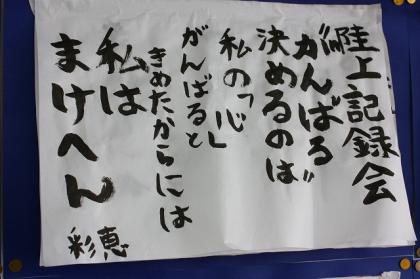 陸上記録会
"がんばる"
決めるのは
私の「心」
がんばると
きめたからには
私は
まけへん
彩恵